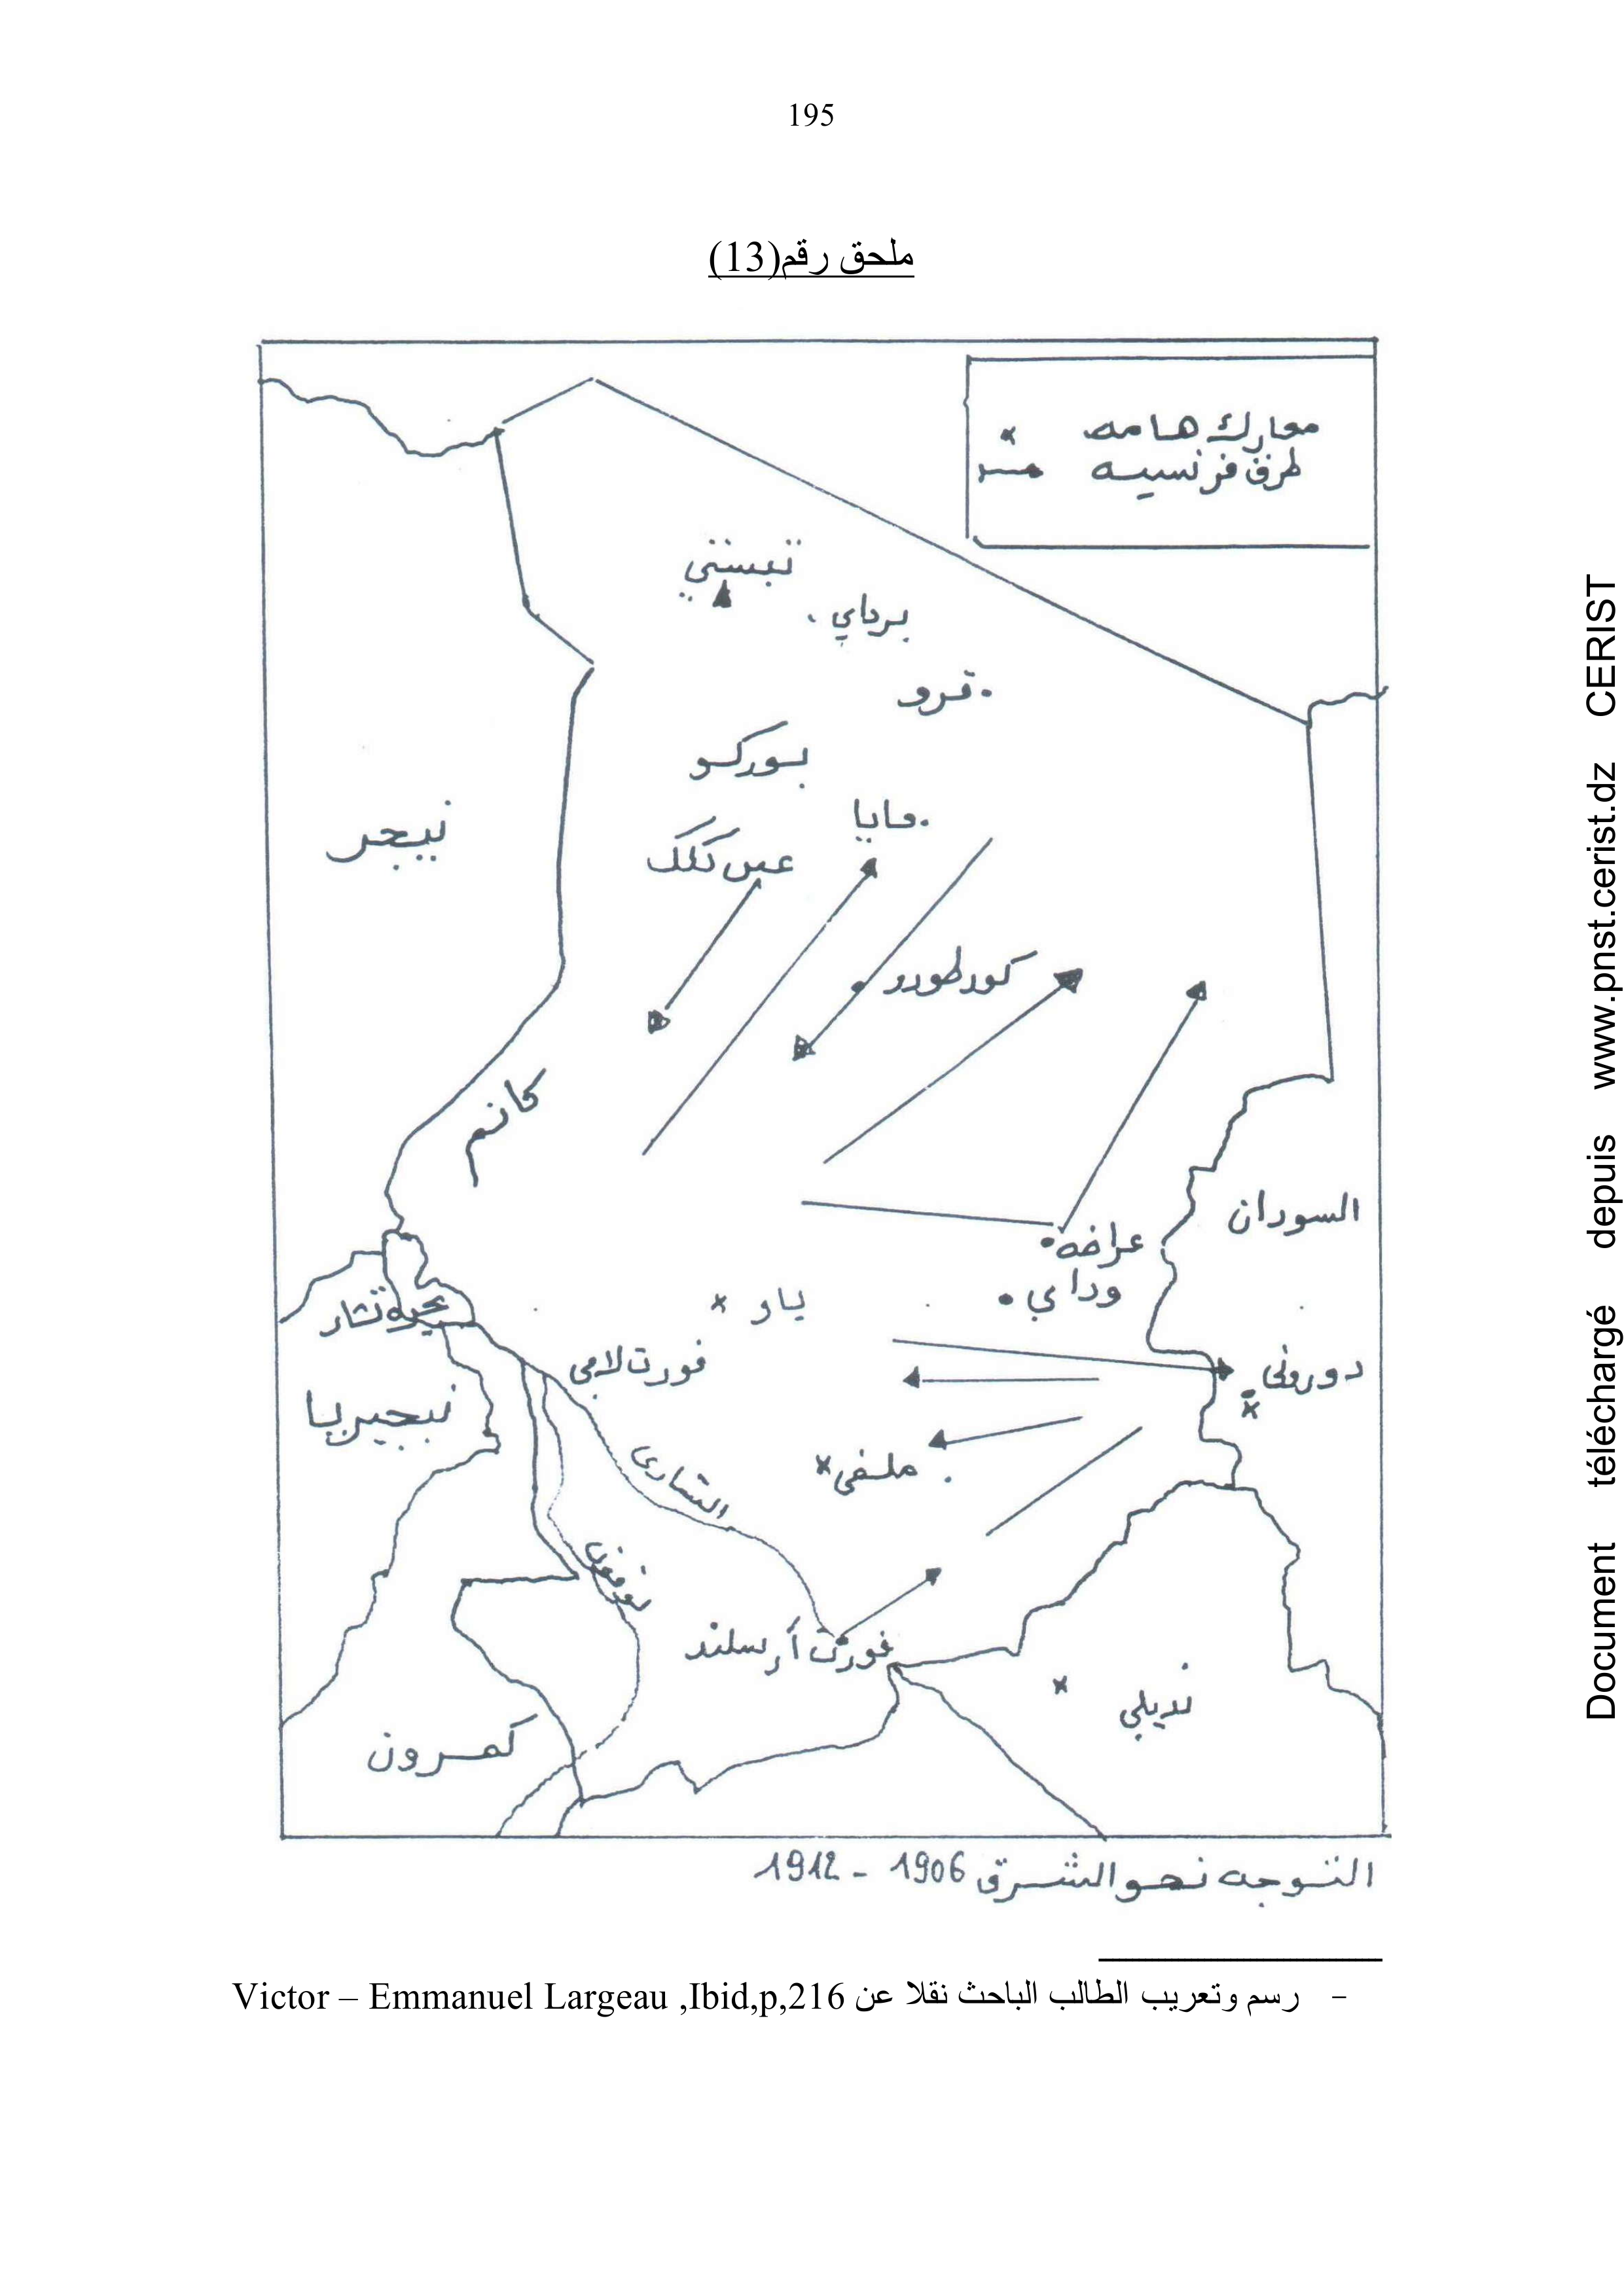 195
ملحق رقم(13)
معارك هامه
طرق فرنسيه
تبستي
برداي
قرو
بوركو
فايا
عين كلك
نيجر
كورطورو
كانم
السودان
عراضه
وداي
ياو
بحيره تشاد
فورت لامي
دوروتي
نيجيريا
ملفي
الشاري
فورت أرسلند
نديلي
كمرون
التوجه نحو الشرق 1906 - 1912
- رسم وتعريب الطالب الباحث نقلا عن Victor – Emmanuel Largeau ,Ibid,p,216
Document téléchargé depuis www.pnst.cerist.dz CERIST